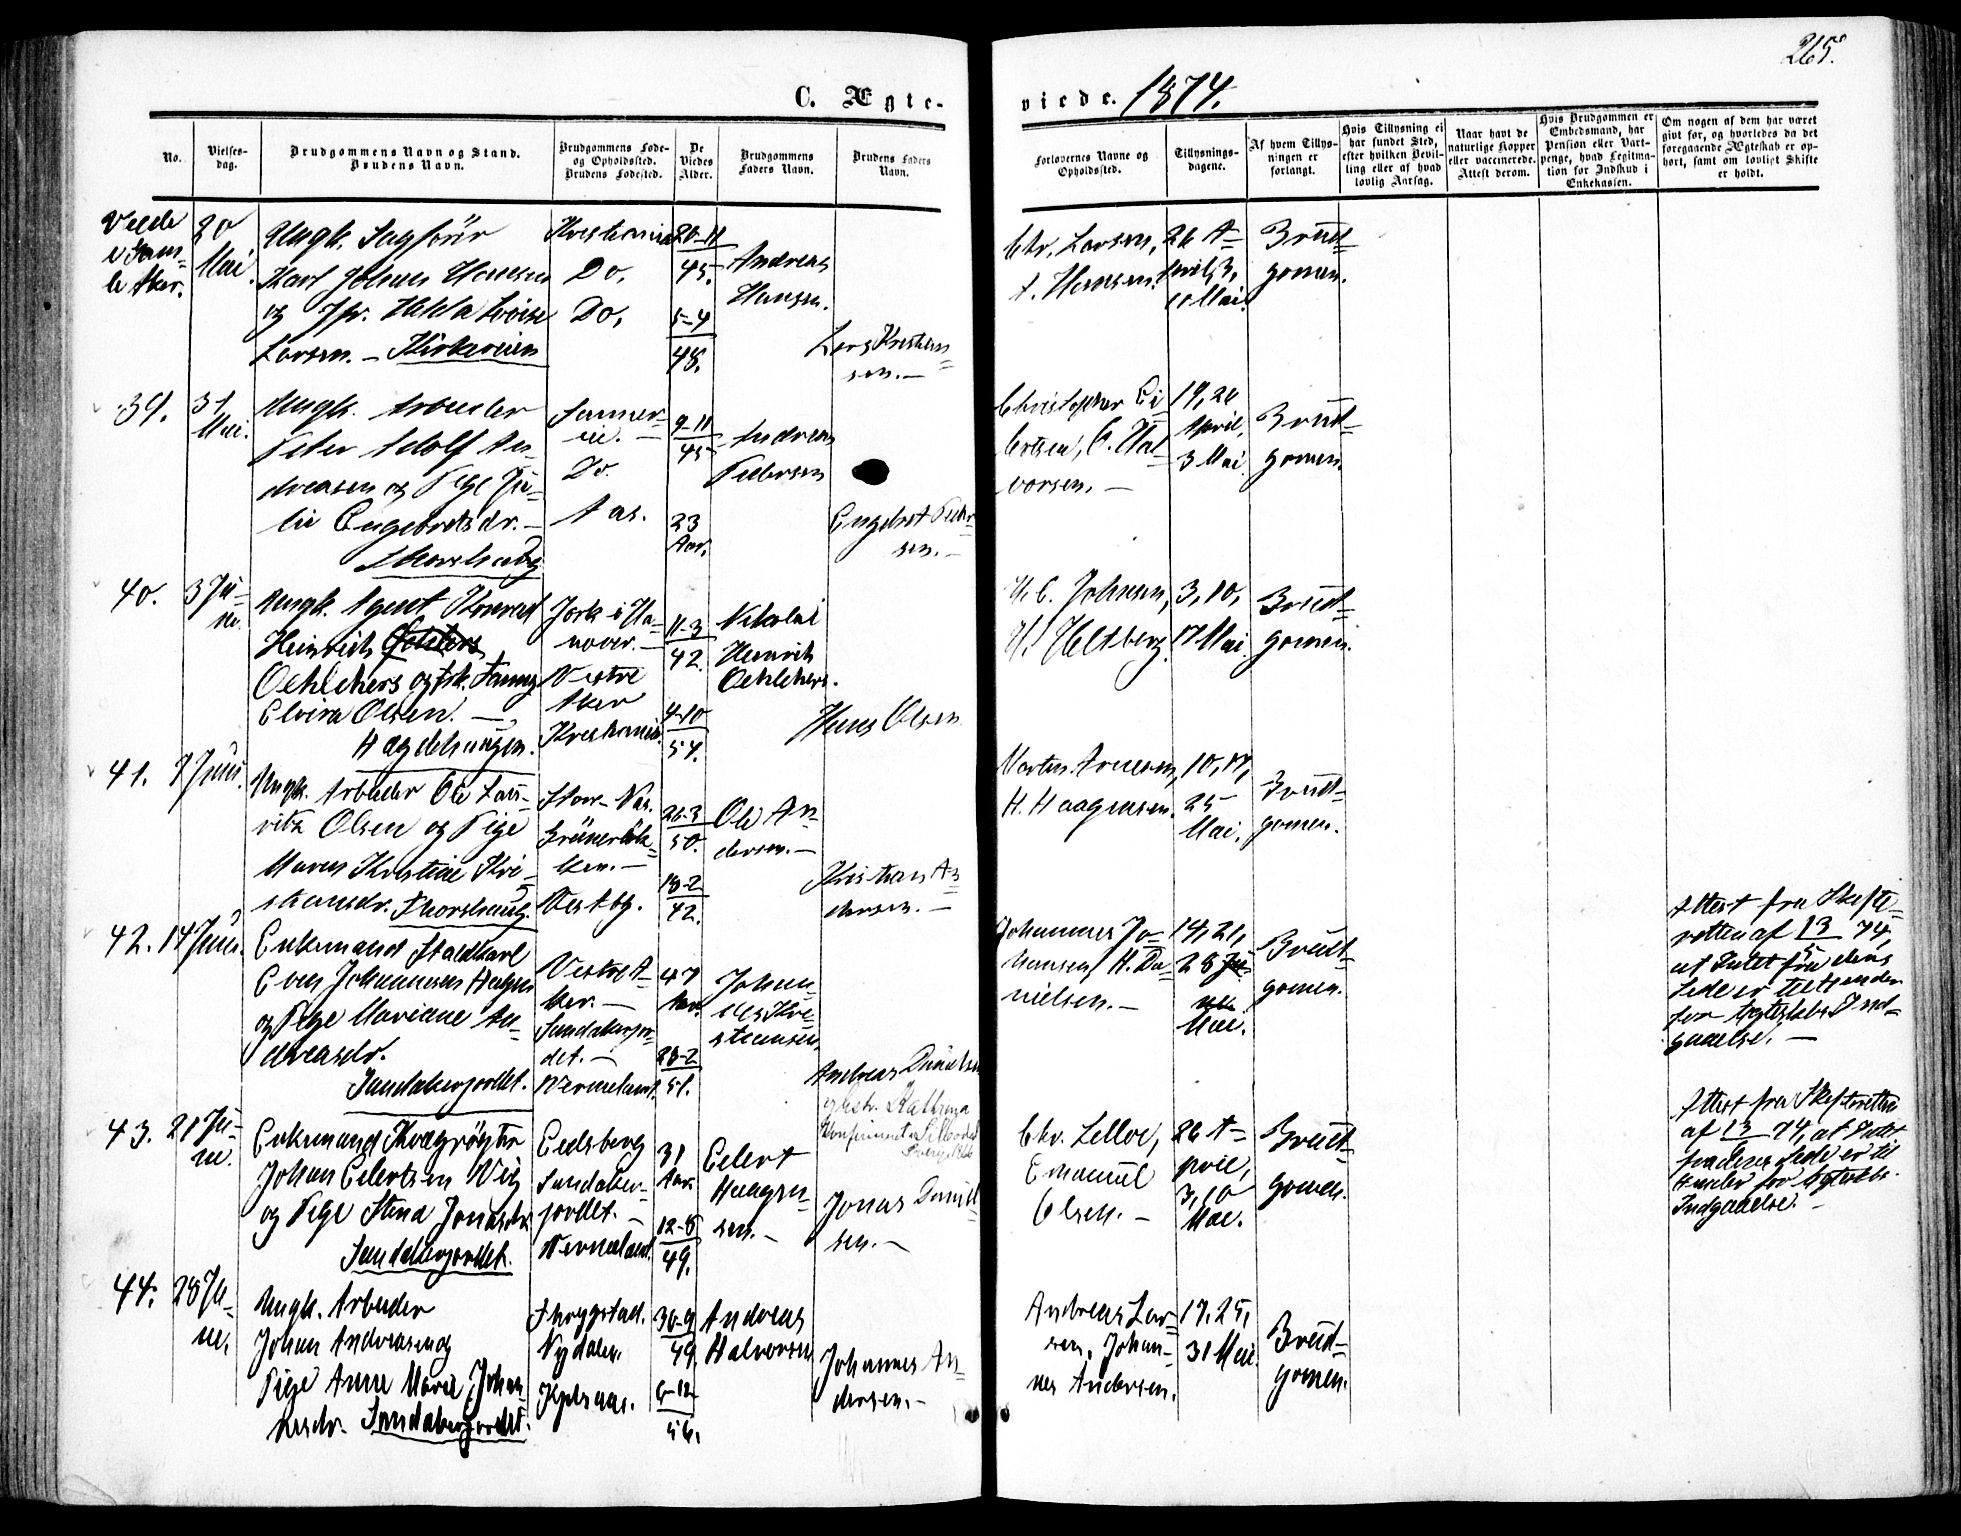 265.
C. Ægte-
viede. 1874.
No.
Vielses-
dag.
Brudgommens Navn og Stand.
Brudens Navn.
Brudgommens Føde-
og Opholdssted.
Brudens Fødested.
De
Viedes
Alder.
Brudgommens
Faders Navn.
Brudens Faders
Navn.
Forlovernes Navne og
Opholdssted.
Tillysnings-
dagene.
Af hvem Tillys-
ningen er
forlangt.
Hvis Tillysning ei
har fundet Sted,
efter hvilken Bevil-
ling eller af hvad
lovlig Aarsag.
Naar havt de
naturlige Kopper
eller vaccinerede.
Attest derom.
Hvis Brudgommen er
Embedsmand, har
Pension eller Vart-
penge, hvad Legitima-
tion for Indskud i
Enkekassen.
Om nogen af dem har været
givt før, og hvorledes da det
foregaaende Ægteskab er op-
hørt, samt om lovligt Skifte
er holdt.
20
Mai.
Ungk.
Karl Johan Hansen
og Louise
Larsen. – Kirkeveien
Kristiania
Do.
Do.
26-11
45.
5-4
48.
Andreas
Hansen.
Lars Kristian-
sen. –
Chr. Larsen,
A. Hansen.
26 A-
pril, 3,
10 Mai.
Brud-
gomen.
39.
31
Mai.
Ungk. Arbeider
Peter Adolf An-
dreasen og Pige Ju-
lie Engebretsdr. –
Thorshaug
Do.
Aas.
9-11
45
23
Aar.
Andreas
Pedersen
Engebret Peder-
sen. –
Christopher Ei-
lertsen, C. Hal-
vorsen. –
19, 26
April,
3 Mai.
Brud-
gomen.
40.
3 Ju-
ni.
Ungk. Agent Konrad
Heinrich
Oehlckers og Frk. Fanny
Elvira Olsen. –
Hagdehaugen.
Jork i Ha-
nover. –
Vestre
Aker
Kristiania.
11-3
42.
4-10
54.
Nikolai
Heinrich
Oehlckers.
Hans Olsen
H. C. Johnsen,
H. Heltberg.
3, 10,
17 Mai.
Brud-
gomen.
41.
7 Juni.
Ungk. Arbeider Ole Lau-
ritz Olsen og Pige
Maren Kristine Kri-
stiansdr. Thorshaug.
Grünerløk-
ken. –
Vestby.
26-3
50.
18-2
42.
Ole An-
dersen. –
Kristian An-
dersen. –
Morten Arnesen,
H. Haagensen.
10, 17,
25
Mai.
Brud-
gomen.
42.
14 Juni.
Enkemand Staldkarl
Even Johannesen Hagen
og Pige Mariane An-
dreasdr.
Sandakerjordet.
Vestre A-
ker. –
Sandakerjor-
det. –
Vermeland.
47
Aar.
28-2
51.
Johan-
nes Kri-
stiansen
Andreas Danielsen
Johannes Jo-
hansen, H. Da-
nielsen. –
14, 21,
28
Mai.
Brud-
gomen.
Attest fra Skifte-
retten af 13/5 74,
at Intet fra dens
Side er til Hinder
for Ægteskabs Ind-
gaaelse. –
43.
21 Ju-
ni.
Enkemand Kvægrøgter
Johan Eilertsen Wiig
og Pige Stina Jonasdr.
Sandakerjordet.
Eidsberg
Sandaker-
jordet. –
Vermeland.
31
Aar.
12-8
49.
Eilert
Haagen-
sen. –
Jonas Daniel-
sen. –
Chr. Lelloe,
Emanuel
Olsen. –
26 A-
pril,
3, 10
Mai.
Brud-
gomen.
Attest fra Skifteretten
af 13/5 74, at Intet
fra dens Side er til
Hinder for Ægteskabs
Indgaaelse. –
44.
28 Ju-
ni.
Ungk. Arbeider
Johan Andreasen og
Pige Anne Marie Johan-
nesdr. Sandakerjordet.
Thrygstad.
Nydalen.
30-9
49.
6-12
56.
Andreas
Halvorsen
Johannes An-
dersen. –
Andreas Lar-
sen, Johan-
nes Andersen.
17, 25,
31 Mai.
Brud-
gomen.